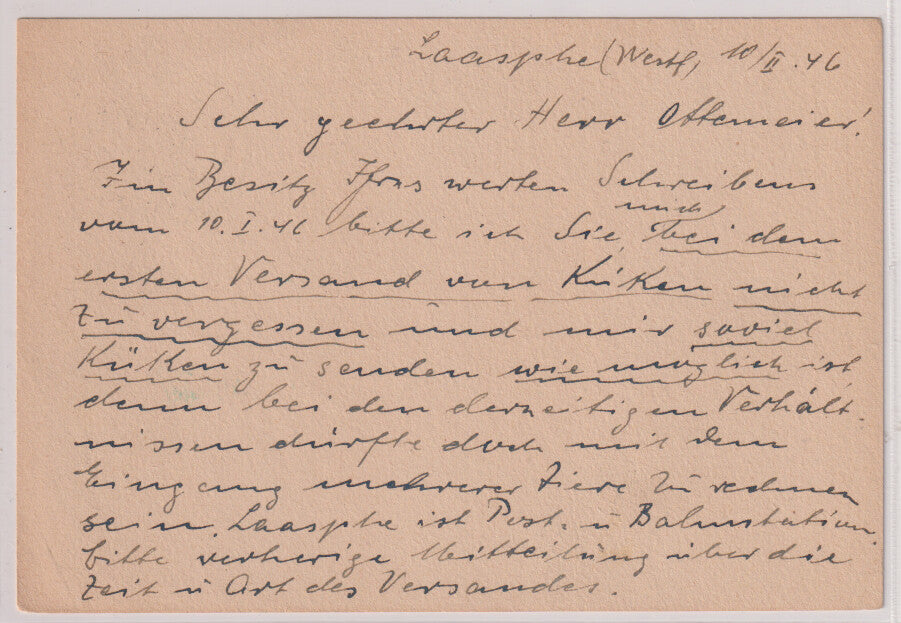 Laasphe (Westf, 10/II. 46
Sehr geehrter Herr Ottemeier!
Im Besitz Ihres werten Schreibens
mich
vom 10. I. 46 bitte ich Sie, bei dem
ersten Versand von Küken nicht
zu vergessen und mir soviel
Küken zu senden wie möglich ist
denn bei den derzeitigen Verhält-
nissen dürfte doch mit dem
Eingang mehrerer Tiere zu rechnen
sein. Laasphe ist Post- u Bahnstation.
bitte vorherige Mitteilung über die
Zeit u Art des Versandes.